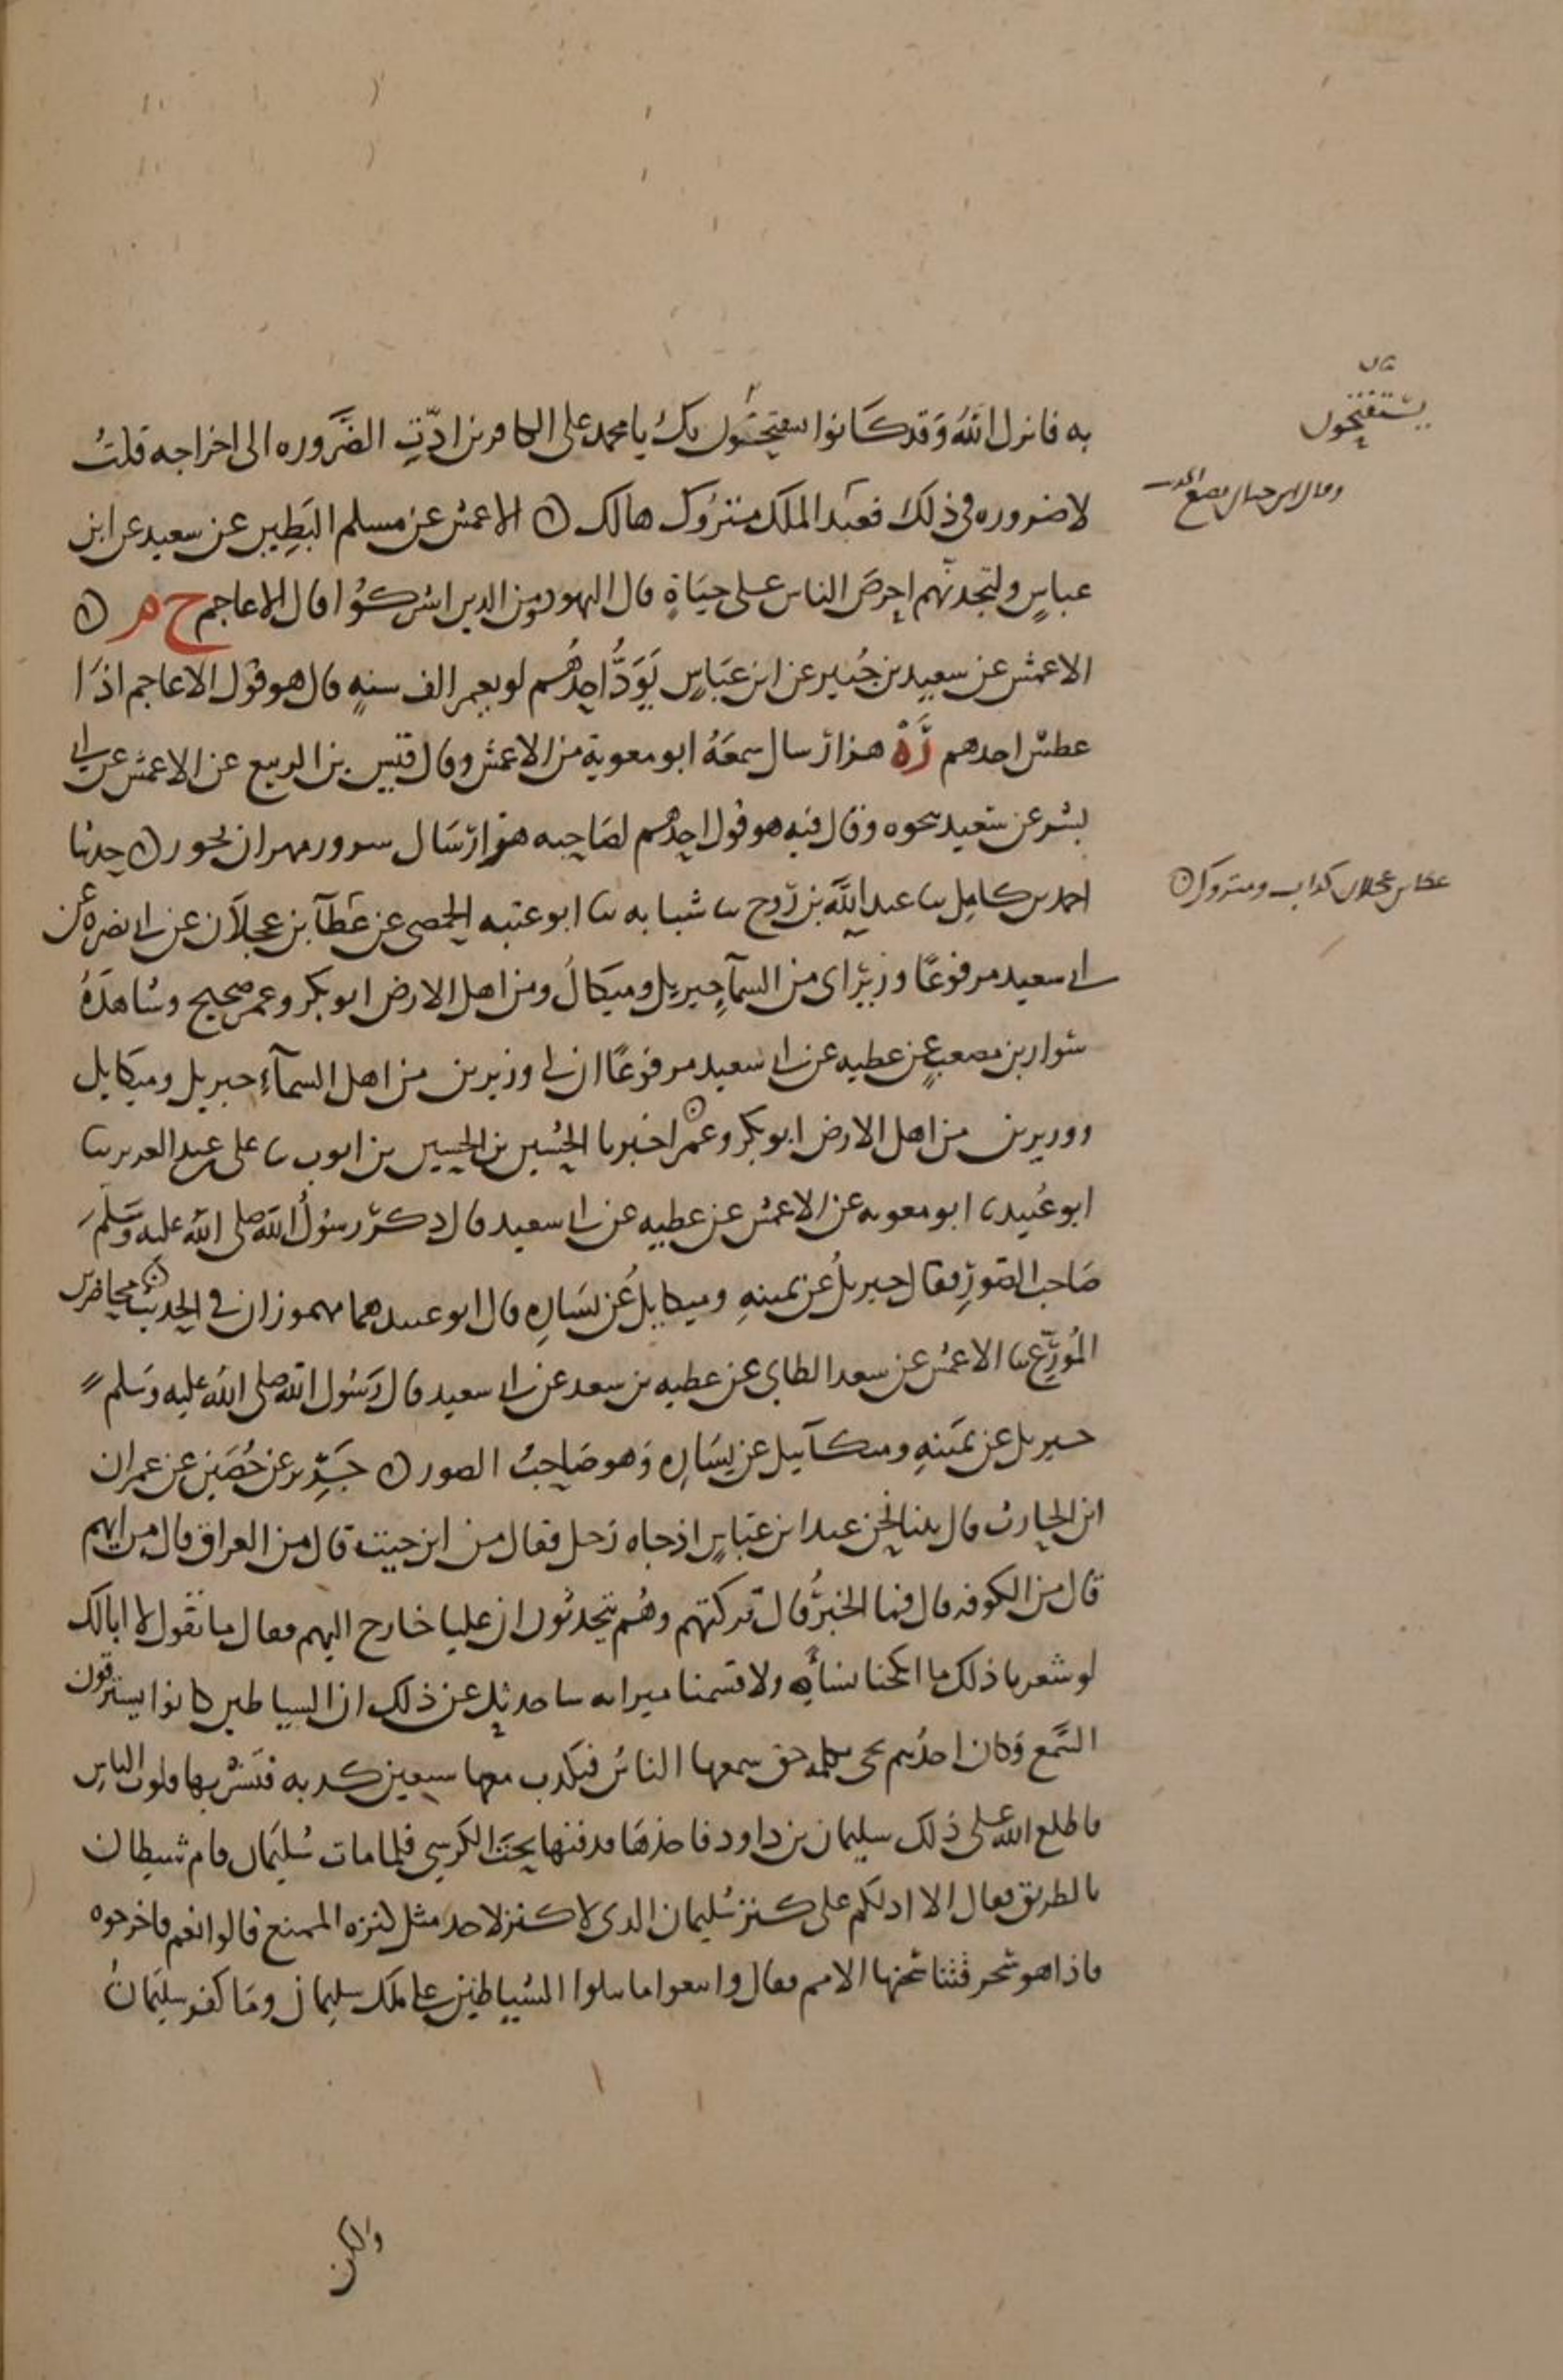 بيان
يستفتحون
به فانزل الله وقد كانوا يستفتحون بك يا محمد على الكافرين ادّت الضَّروره الى اخراجه قلتُ
وقال ابن حبان يضع الحديث
لا ضروره في ذلك فعبد الملك متروك هالك ن الاعمش عن مسلم البَطِين عن سعيد عن ابن
عباسٍ ولتجدنّهم احرصَ الناس على حيَاةٍ قال اليهود ومن الذين اشركُوا قال الاعاجم خ م ن
الاعمش عن سعيد بن جُبير عن ابن عبَّاسٍ يَوَدُّ احدُهُم لو يعمر الف سنةٍ قال هو قول الاعاجم اذا
عطش احدهم زَهْ هزار سال سمعَهُ ابو معوية من الاعمش وقال قيس بن الربيع عن الاعمش عن ابي
بشر عن سَعيد نحوه وقال فيه هو قول احدهم لصَاحبه هزار سَال سرور مهرجان بخور ن حدثنا
احمد بن كامل نا عبد الله بن رَوح نا شبابه نا ابو عتبه الحمصي عن عَطآ بن عجلَان عن ابي نضره عن
عطا بن عجلان كذاب ومتروك ن
ابي سعيد مرفوعًا وزيرَاى من السمآءِ جبريل وميكالُ ومن اهل الارض ابو بكر وعمر صحيح وشاهدُهُ
سَوار بن مصعبٍ عن عطيه عن ابي سعيد مرفوعًا ان لي وزيرين من اهل السمآءِ جبريل وميكايل
ووزيرين من اهل الارض ابو بكر وعمر ن اخبرنا الحُسين بن الحسين بن ايوب نا على بن عبد العزيز نا
ابو عُبيد نا ابو معويه عن الاعمش عن عطيه عن ابي سعيد قال ذكرَ رسُولُ الله صلى الله عليه وَسَلَّمَ
صَاحب الصُّورِ فقال جبريلُ عن يمينهِ وميكايلُ عن يسَارهِ قال ابو عبيد هما مهموزان في الحديث ن محاضر بن
المُوَرِّع نا الاعمش عن سعد الطايى عن عطيه بن سعد عن ابي سعيد قال رَسُول الله صلى الله عليه وسَلم
جبريل عن يمَينهِ وميكآييل عن يسَارهِ وَهو صَاحبُ الصور ن جَرِيْر عن حُصَين عن عمران
ابن الحارث قال بينا نحن عند ابن عبّاسٍ اذ جاه رَجل فقال من اين جيت قال من العراق قال من ايهم
قال من الكوفه قال فما الخبرُ قال تركتهم وهُم يتحدثون ان عليا خارج اليهم فقال ما تقول لا ابا لك
لو شعرنا ذلك ما انكحنا نسأه ولا قسمنا ميراثه ساحدثك عن ذلك ان الشياطين كانوا يسترقون
السَّمع وَكان احدُهم يجى بكلمه حق سمعها الناسُ فيكذب معها سبعين كذبه فتَشْربها قلوب الناسِ
فاطلع الله على ذلك سليمان بن داود فاخذهَا فدفنها تحت الكرسي فلما مات سُليمَان قام شيطان
بالطريق فقال الا ادلكم على كنز سُليمان الذى لا كنز لاحد مثل كنزه الممنع قالوا نعم فاخرجوه
فاذا هو سِحر فتناسَخها الامم فقال واتبعوا ما تتلوا الشياطين على ملك سليمان ومَا كفر سليمَانُ
ولكن